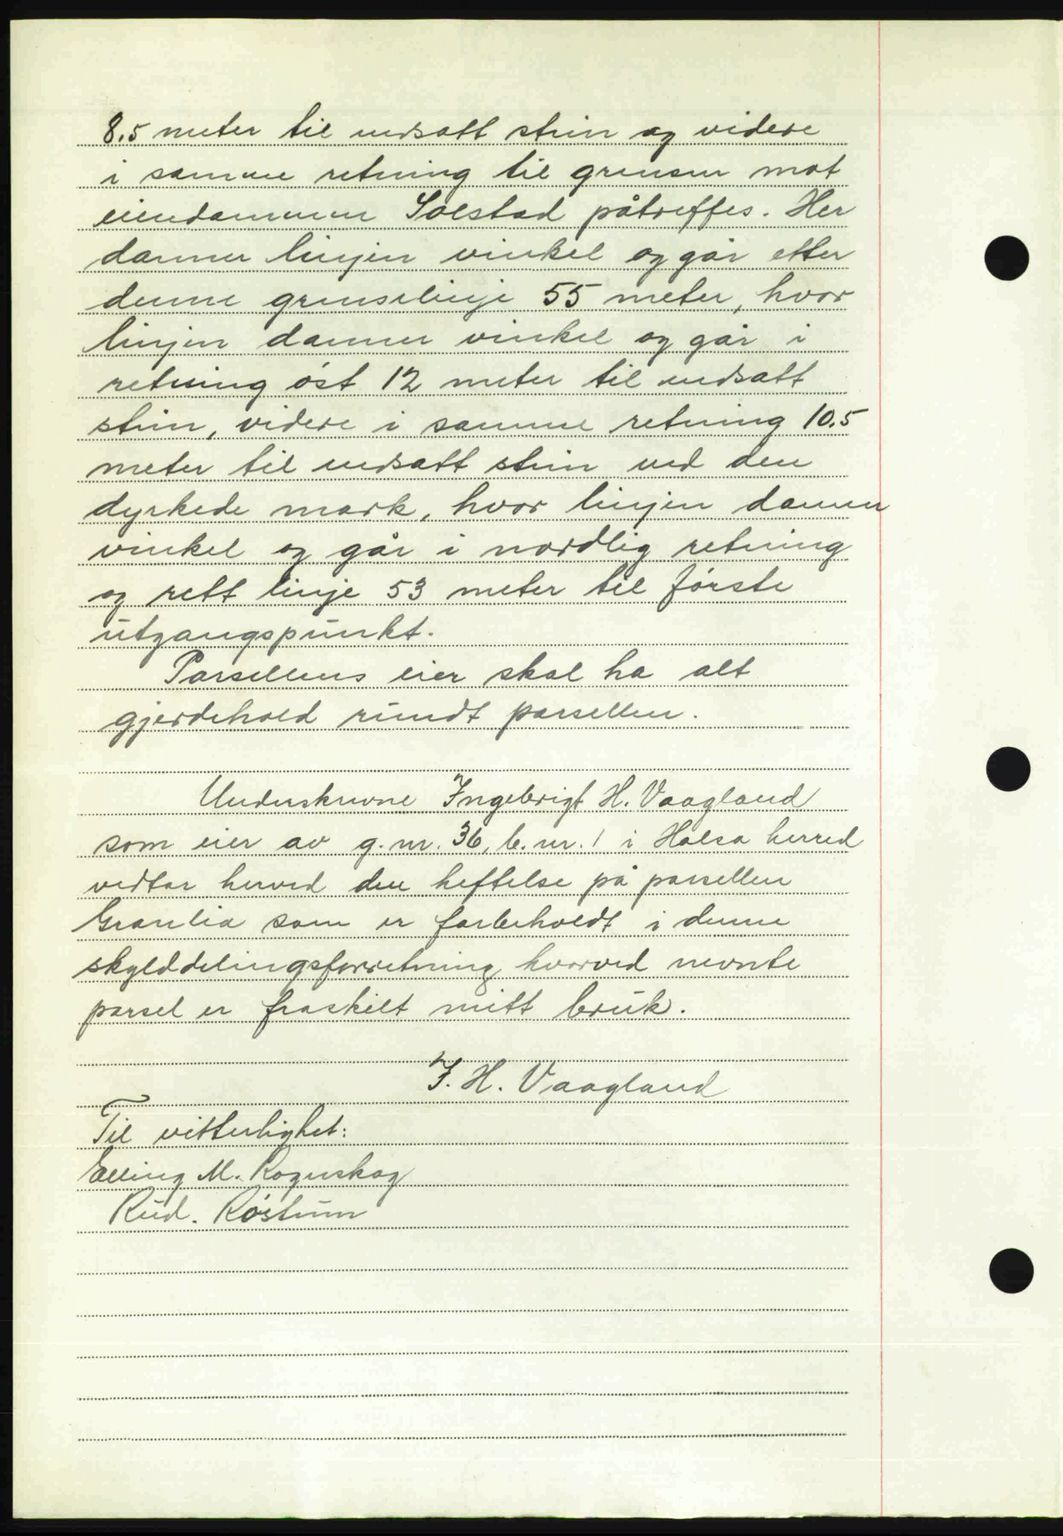 8.5 meter til nedsatt stein og videre
i samme retning til grensen mot
eiendommen Solstad påtreffes. Her
danner linjen vinkel og går etter
denne grenselinje 55 meter, hvor
linjen danner vinkel og går i
retning øst 12 meter til nedsatt
stein, videre i samme retning 10.5
meter til nedsatt stein ved den
dyrkede mark, hvor linjen danner
vinkel og går i nordlig retning
og rett linje 53 meter til første
utgangspunkt.
Parsellens eier skal ha alt
gjerdehold rundt parsellen.
Underskrevne Ingebrigt H. Vaagland
som eier av g.nr. 36, b.nr. 1 i Halsa herred
vedtar herved den heftelse på parsellen
Granlia som er forbeholdt i denne
skylddelingsforretning hvorved nevnte
parsel er fraskilt mitt bruk.
I. H. Vaagland
Til vitterlighet:
Elling M. Rognskog
Rud. Røstum